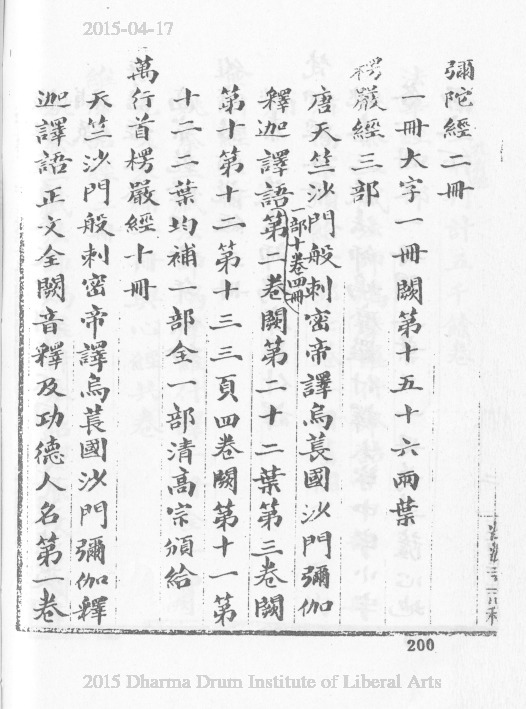 2015-04-17
彌陀經二冊
一冊大字一冊闕第十五十六兩葉
楞嚴經三部
唐天竺沙門般剌密帝譯烏萇國沙門彌伽
釋迦譯語
一部十卷四冊
第二卷闕第二十二葉第三卷闕
第十第十二第十三三頁四卷闕第十一第
十二二葉均補一部全一部清高宗頒給
萬行首楞嚴經十冊
天竺沙門般剌密帝譯烏萇國沙門彌伽釋
迦譯語正文全闕音釋及功德人名第一卷
200
2015 Dharma Drum Institute of Liberal Arts